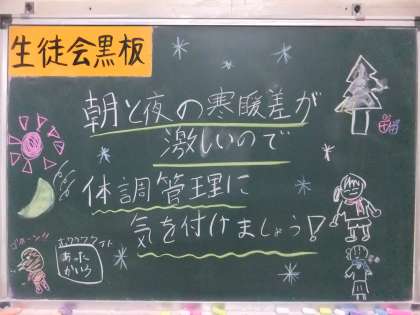 生徒会黒板
朝と夜の寒暖差が
激しいので
体調管理に
気を付けましょう!
ゴホーンッ
あった
かいろ